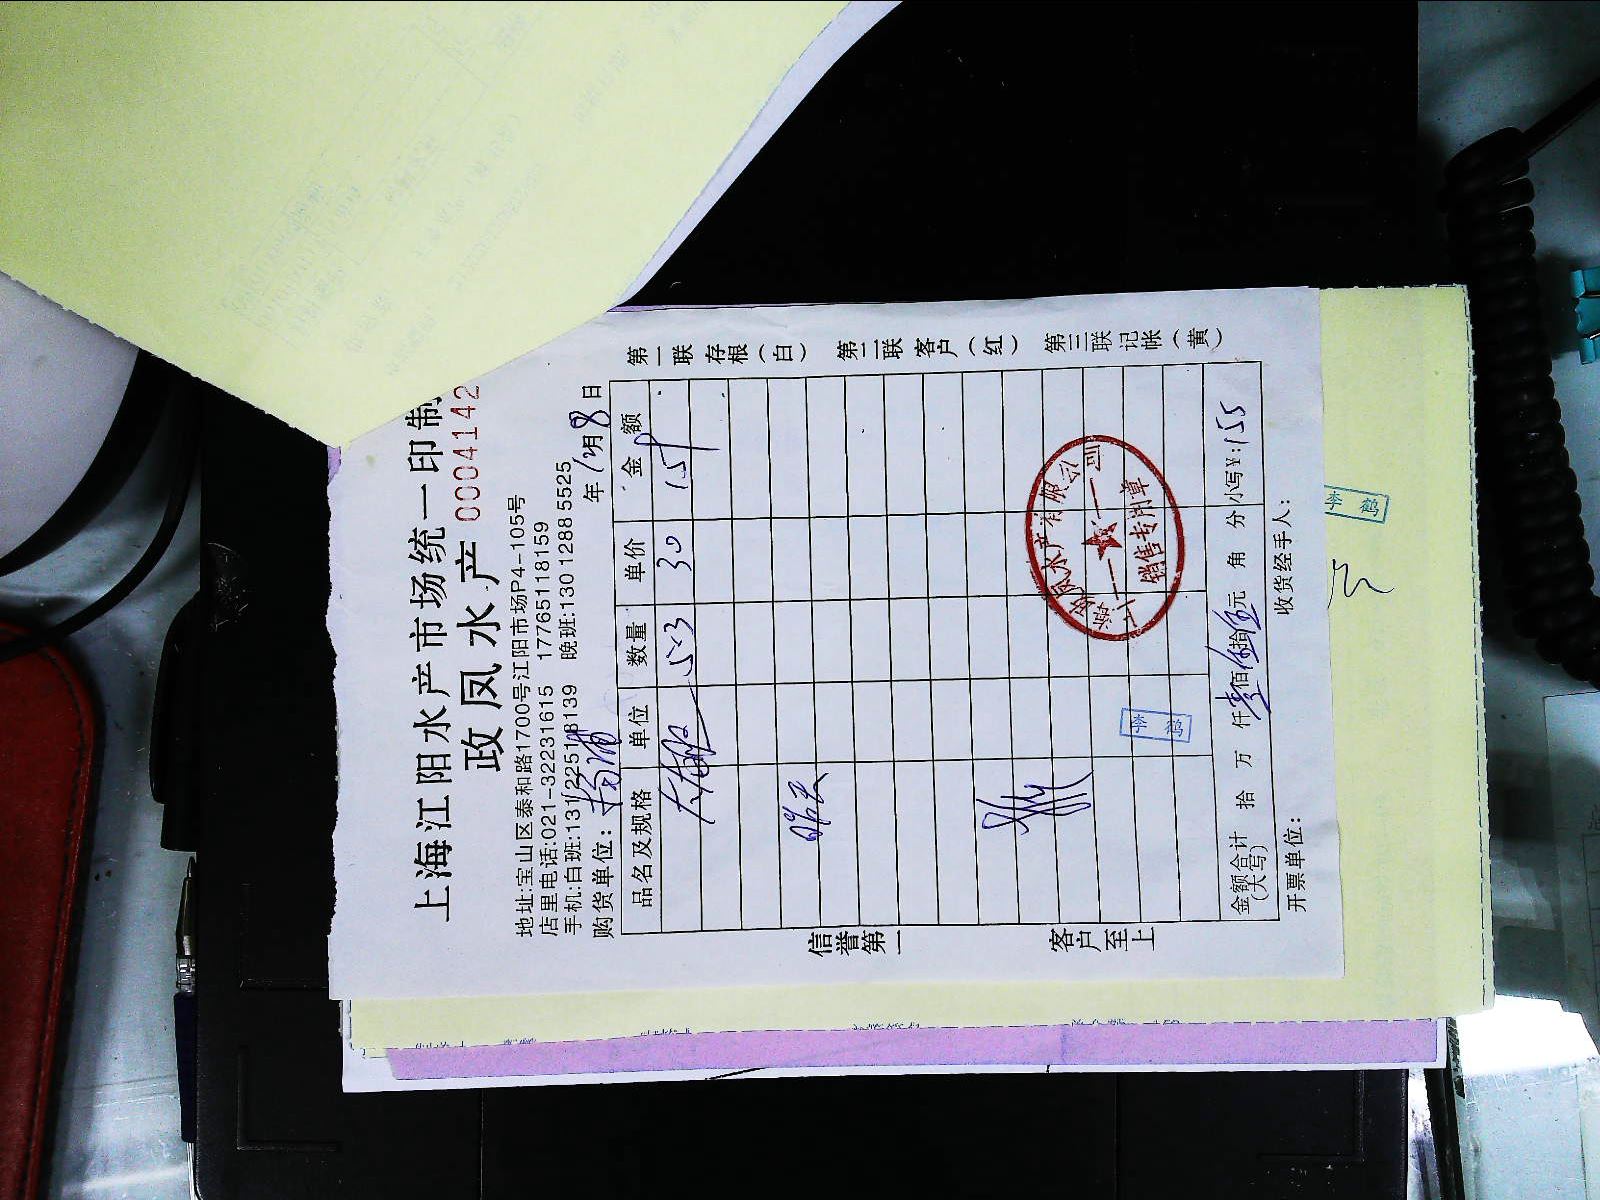 上海江阳水产市场统一印制
政凤水产 0004142
地址:宝山区泰和路1700号江阳市场P4-105号
店里电话:021-32231615 17765118159
手机:白班:131 2251 8139 晚班:130 1288 5525
购货单位: 杨浦 年12月8日
品名及规格 单位 数量 单价 金额
523 30 157
明天
金额合计(大写) 拾 万 仟壹佰伍拾伍元 角 分 小写¥:155
开票单位: 收货经手人:
第一联存根(白) 第二联客户(红) 第三联记帐(黄)
信誉第一
客户至上
政凤水产有限公司
销售专用章
李鹤
李鹤